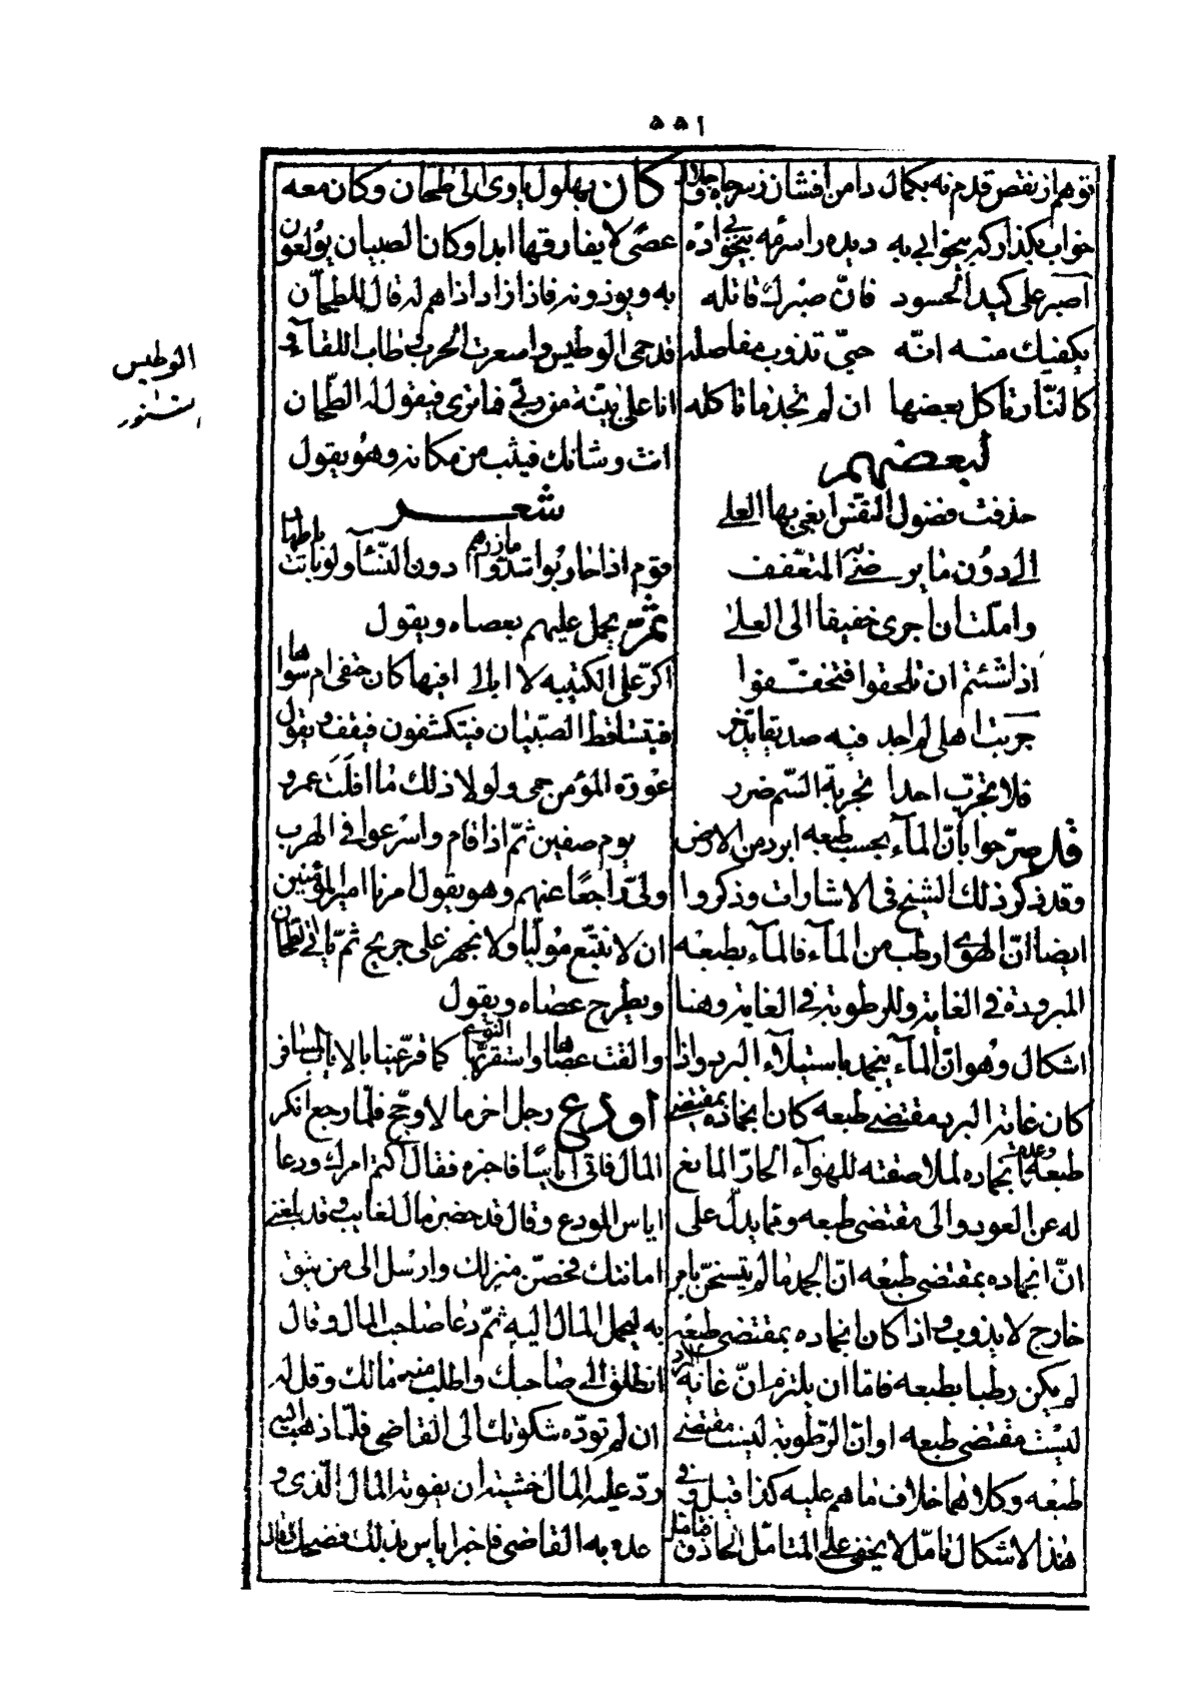 ٥٥١
توهم از نقص قدم نه بكمال دامن افشان ز سر جاه و جلال
خواب بگذار كه بيخوابى به ديده را سرمه بيخوابى ده
اصبر على كيد الحسود فانّ صبرك قاتله
يكفيك منه انّه حىّ تذوب مفاصله
كالنّار تاكل بعضها ان لم تجد ما تاكله
لبعضهم
حذفت فضول النفس ابغى بها العلى
الى دون ما يرضى به المتعفف
واملت ان اجرى خفيفا الى العلى
اذا شئتم ان تلحقوا فتخففوا
جربت اهلى لم اجد فيه صديقا يدّخر
فلا تجرّب احدا تجربة السّم ضرر
قد صرّحوا بانّ المآء بحسب طبعه ابرد من الارض
وقد ذكر ذلك الشيخ فى الاشارات وذكروا
ايضا انّ الهوى ارطب من المآء فالمآء بطبعه
البرودة فى الغاية وللرطوبة فى الغاية وهنا
اشكال وهو انّ المآء ينجمد باستيلاء البرد واذا
كان غاية البرد مقتضى طبعه كان انجماده بمقتضى
طبعه وعدم انجماده لملاصقته للهوآء الحارّ المانع
له عن العود الى مقتضى طبعه وممّا يدلّ على
انّ انجماده بمقتضى طبعه انّ الجمد ما لم يتسخّن بامر
خارج لا يذوب واذا كان انجماده بمقتضى طبعه
لم يكن رطبا بطبعه فامّا ان يلتزم انّ غاية البرد
ليست مقتضى طبعه او انّ الرّطوبة ليست مقتضى
طبعه وكلاهما خلاف ما هم عليه كذا قيل وفى
هذا الاشكال تامّل لا يخفى على المتامّل الحاذق فتامل
كان بهلول ياوى الى طحّان وكان معه
عصًى لا يفارقها ابدا وكان الصبيان يولعون
به ويوذونه فاذا زاد اذاهم له قال للطحّان
قد حمى الوطيس واسعرت الحرب وطاب اللقآء و
انا على بيّنة من ربّى فما ترى فيقول له الطّحان
انت وشانك فيثب من مكانه وهو يقول
شعر
قوم اذا حاربوا شدّوا مازرهم دون النّسآء ولو باتت باطهار
ثمّ يحمل عليهم بعصاه ويقول
اكرّ على الكتيبه لا ابالى افيها كان حتفى ام سواها
فيتساقط الصّبيان فيتكشفون فيقف ويقول
عورة المؤمن حمى ولولا ذلك ما افلت عمرو
يوم صفين ثمّ اذا قام واسرعوا فى الهرب
ولىّ راجعًا عنهم وهو يقول امرنا امير المؤمنين
ان لا نتبع مولّيا ولا نجهز على جريح ثمّ ياتى الطحّان
ويطرح عصاه ويقول
والقت عصاها واستقرّ بها النوى كما قرّ عينا بالاياب المسافر
اودع رجل اخر مالا وحجّ فلمّا رجع انكر
المال فاتى اياسًا فاخبره فقال اكتم امرك ودعا
اياس المودع وقال قد حضر مال لغايب وقد بلغنى
امانتك فحصّن منزلك وارسل الى من يثق
به ليحمل المال اليه ثمّ دعا صاحب المال وقال
انطلق الى صاحبك واطلب منه مالك وقل له
ان لم تردّه شكوتك الى القاضى فلمّا ذهب اليه
ردّ عليه المال خشية ان يفوته المال الّذى و
عده به القاضى فاخبر اياس بذلك فضحك وقال
الوطيس
التنور